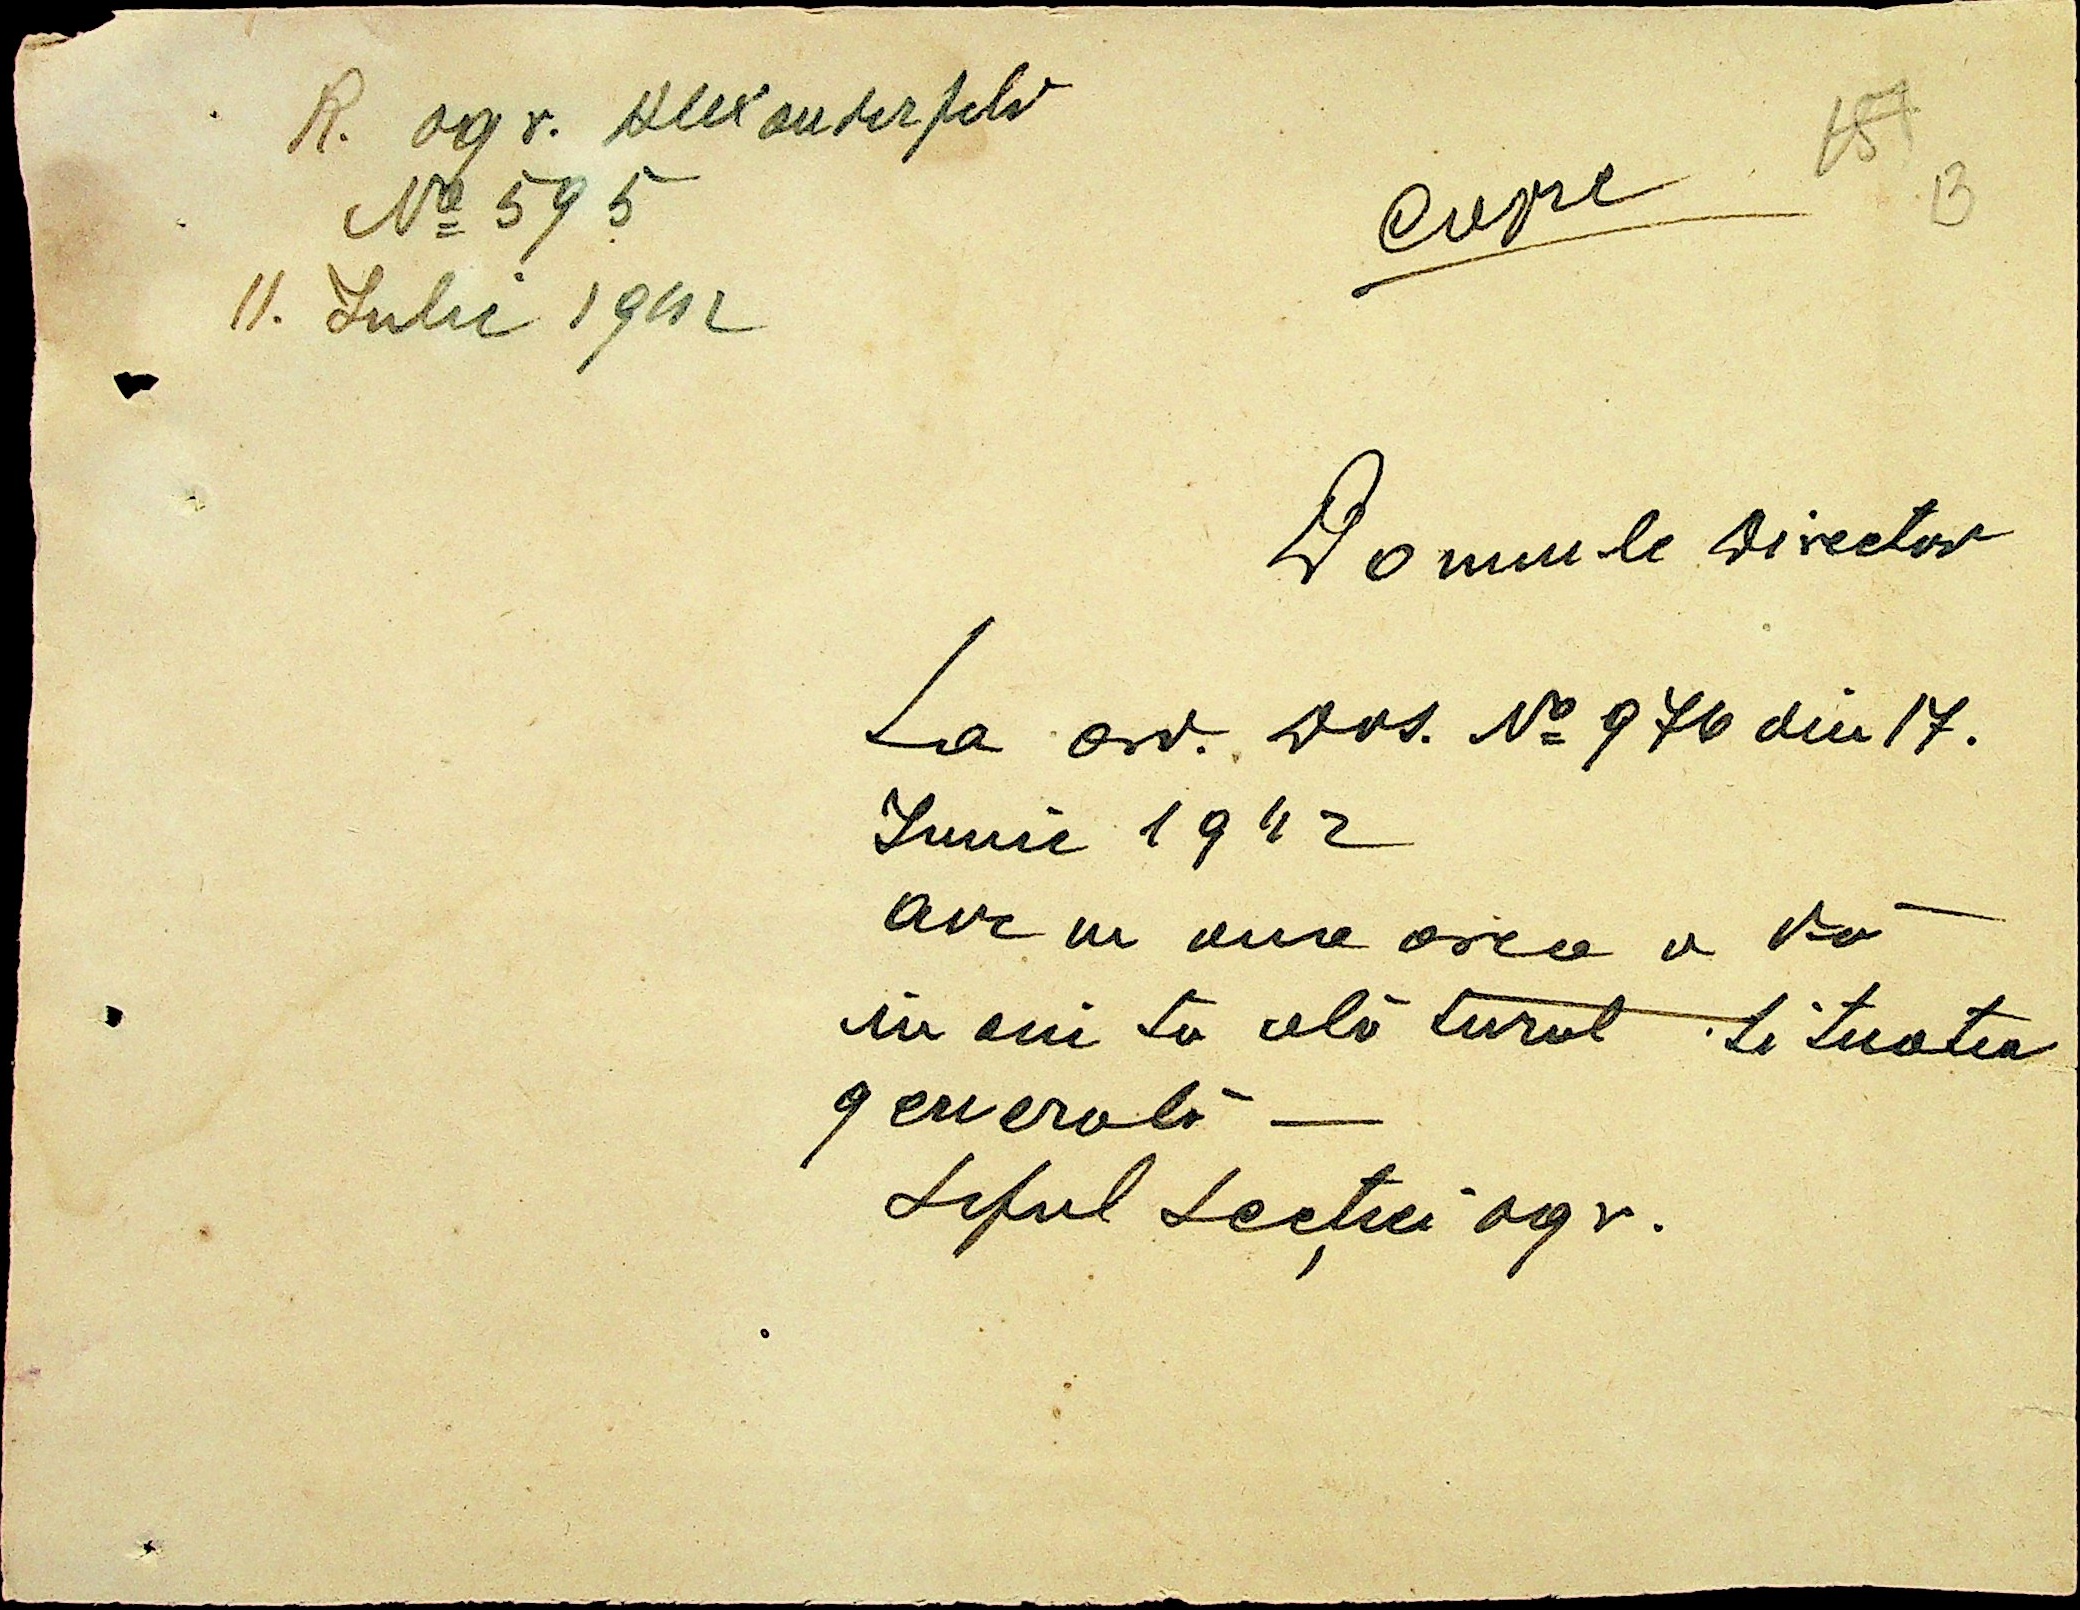 R. agr. Alexanderfeld
157
Copie
13
№ 595
11. Iulie 1942
Domnule Director
La ord. Dvs. № 976 din 17.
Iunie 1942
avem onoarea a vă
înainta alăturat situatia
generală —
Seful Secției agr.